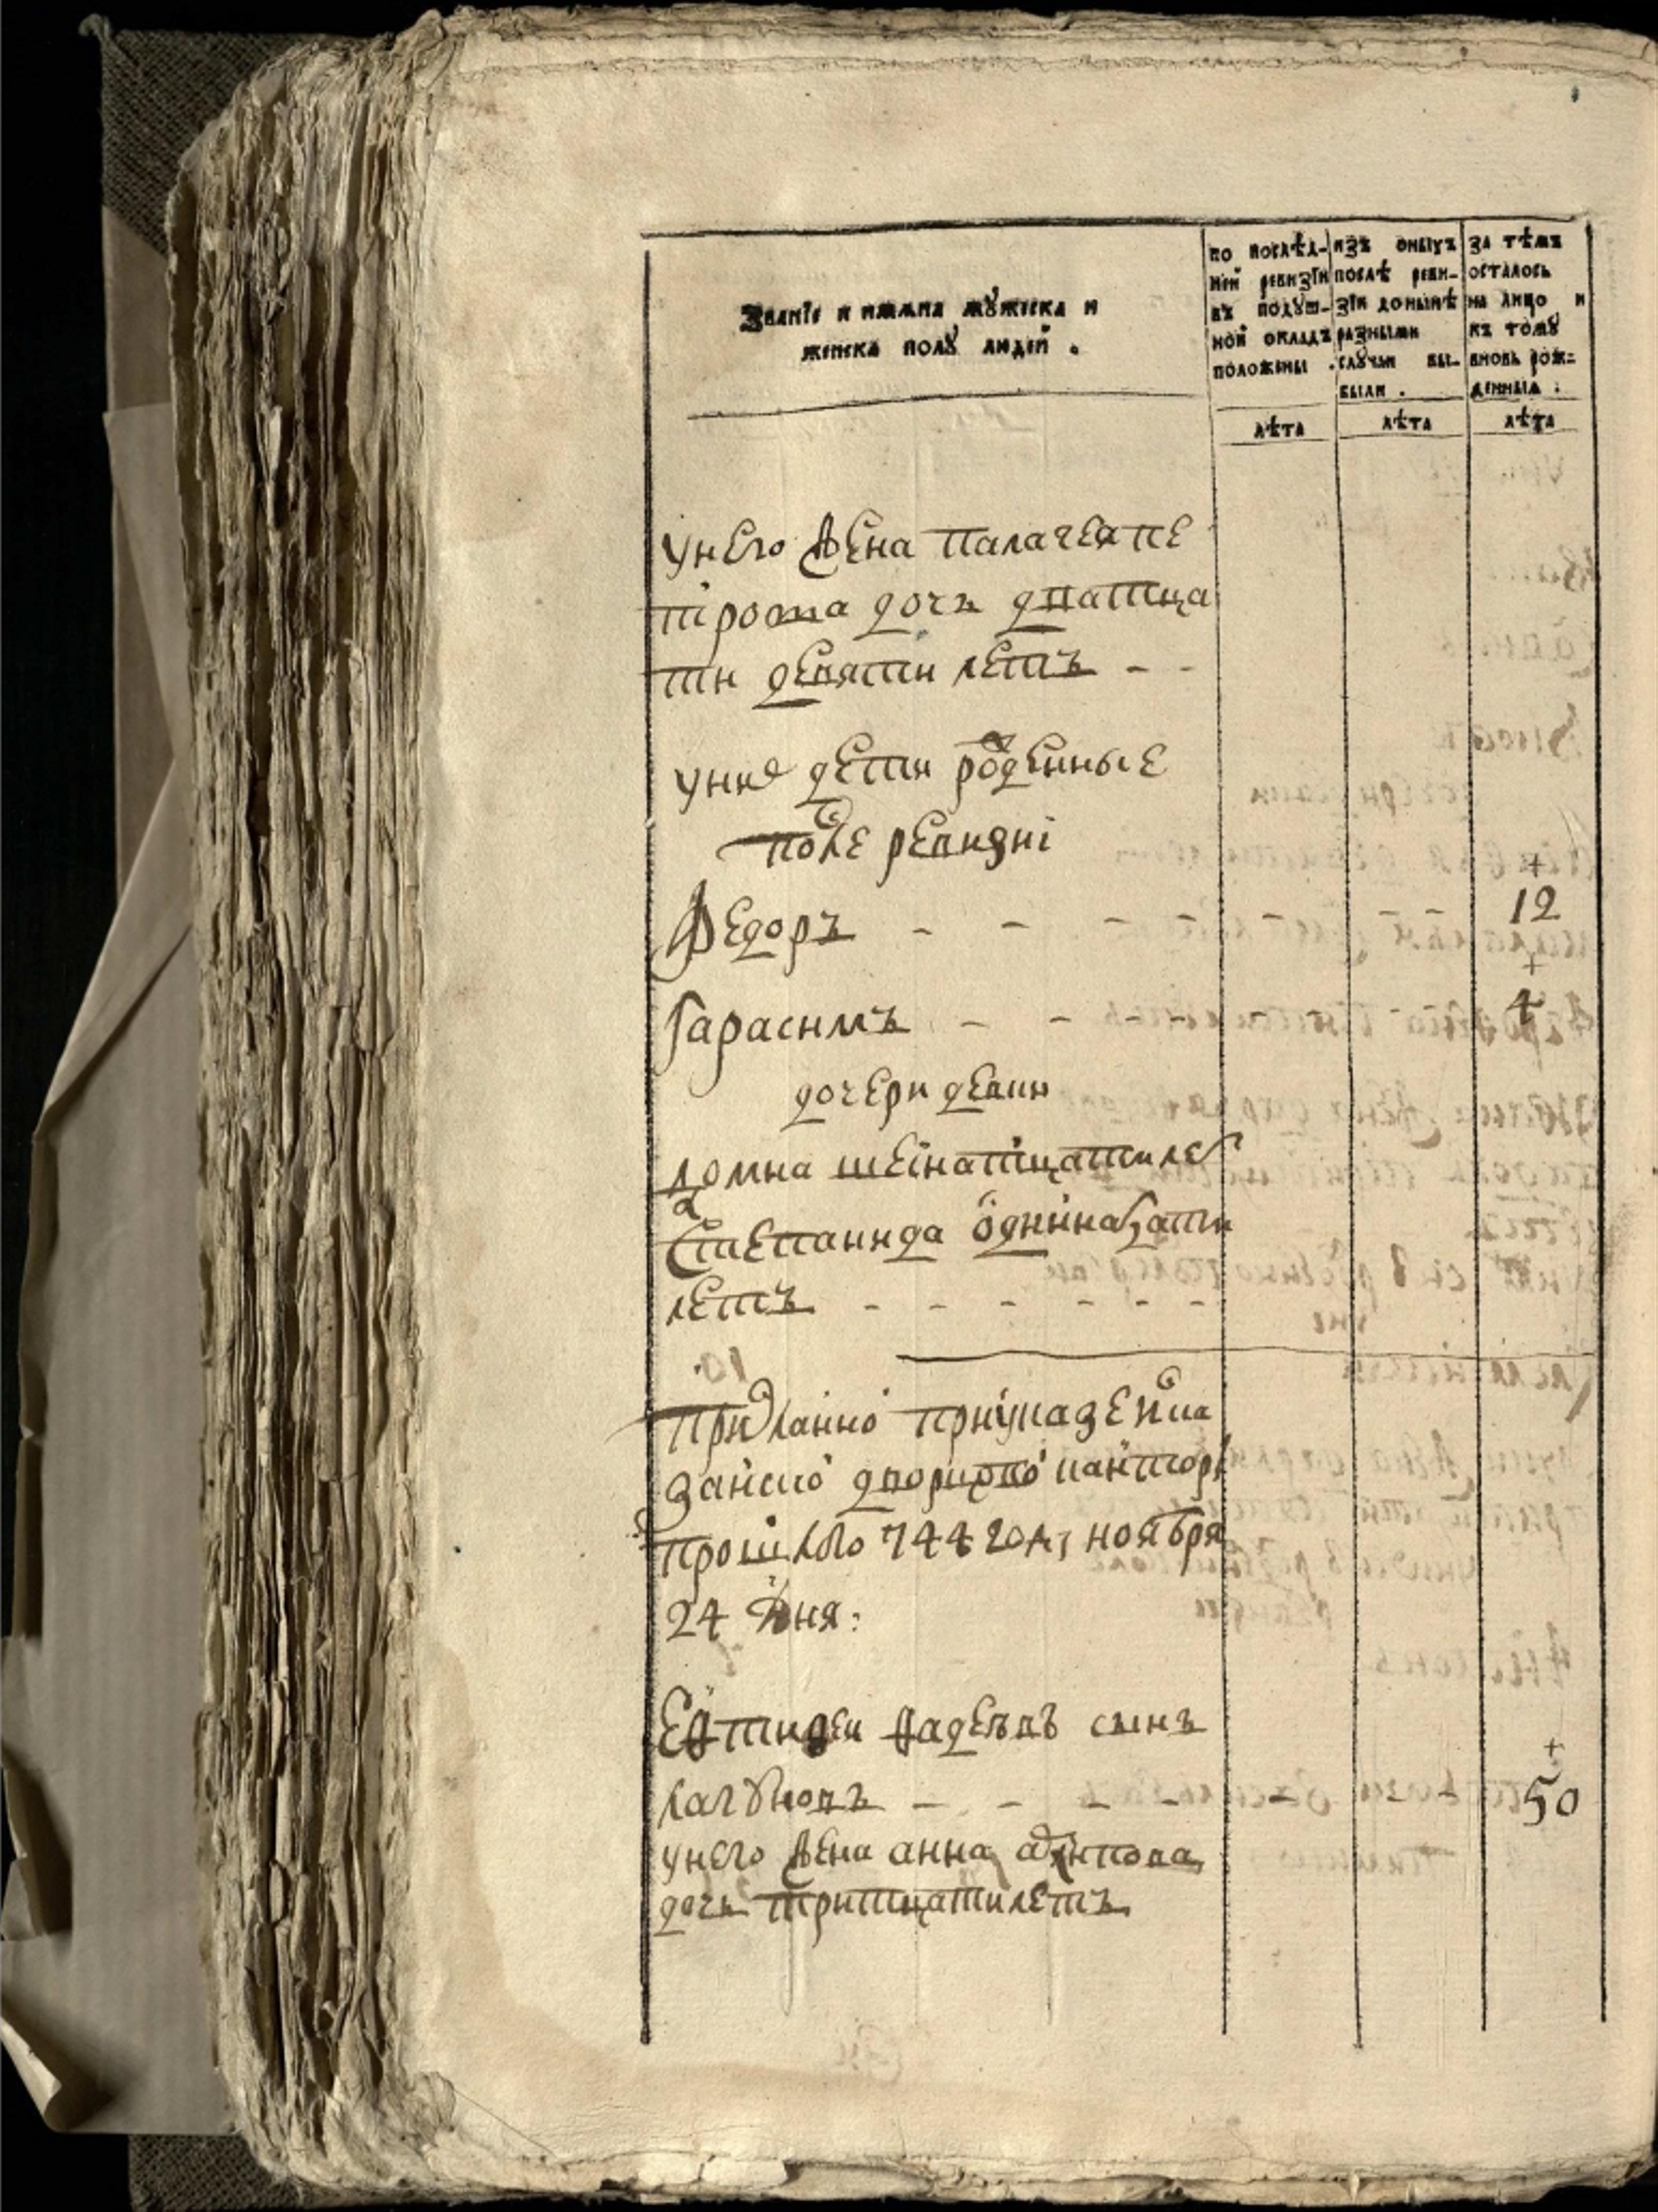 Званїе и имяна мꙋжеска и
женска полꙋ людей .
по послѣд-
ней ревизїи
въ подꙋш-
ной окладъ
положены .
изъ оныхъ
послѣ реви-
зїи донынѣ
разными
слꙋчаи вы-
были .
за тѣмъ
осталось
на лицо и
къ томꙋ
вновь рож-
денныя .
лѣта лѣта лѣта
у него жена палагея пе
трова дочь дватца
ти девяти летъ - -
у них дети рожденные
после ревизиі
+
Федоръ - - - - - - - 12
+
Гарасимъ - - - - - 4
дочери девки
домна шеснатцати лет
Степанида однинатцати
летъ - - - - - -
прошлого 744 году ноября
24 дня:
фадеевъ сынъ
+
- - - - - - 50
у него жена анна
дочь тритцати летъ